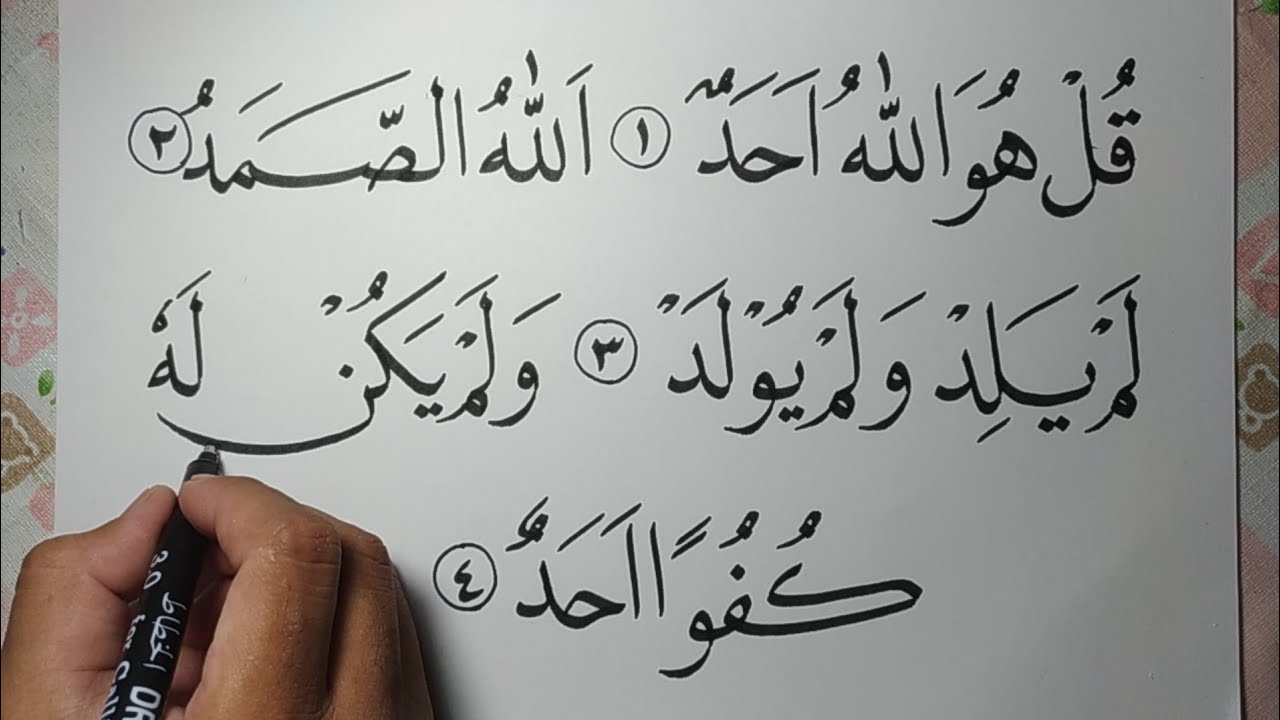 قُلْ هُوَ اللّٰهُ اَحَدٌ ١ اَللّٰهُ الصَّمَدُ ٢
لَمْ يَلِدْ وَلَمْ يُوْلَدْ ٣ وَلَمْ يَكُنْ لَهٗ
كُفُوًا اَحَدٌ ٤
3.0 الخطاط
for